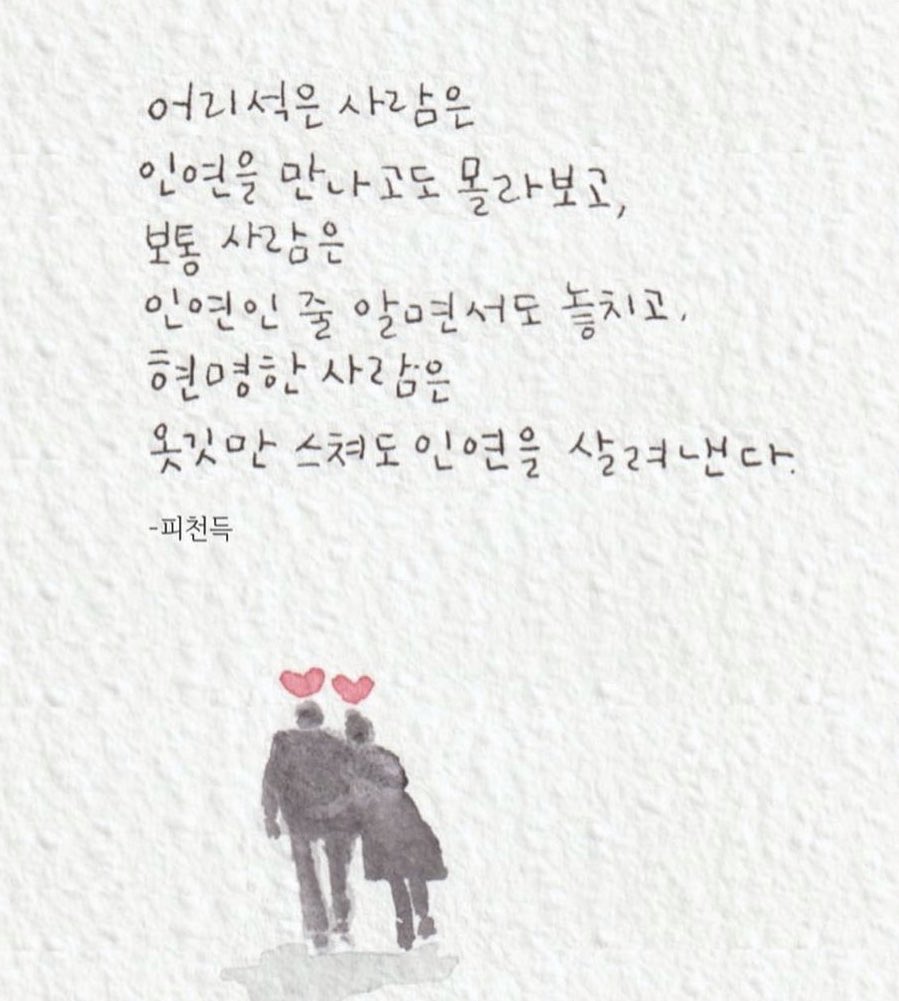 어리석은 사람은
인연을 만나고도 몰라보고,
보통 사람은
인연인 줄 알면서도 놓치고,
현명한 사람은
옷깃만 스쳐도 인연을 살려낸다.
-피천득